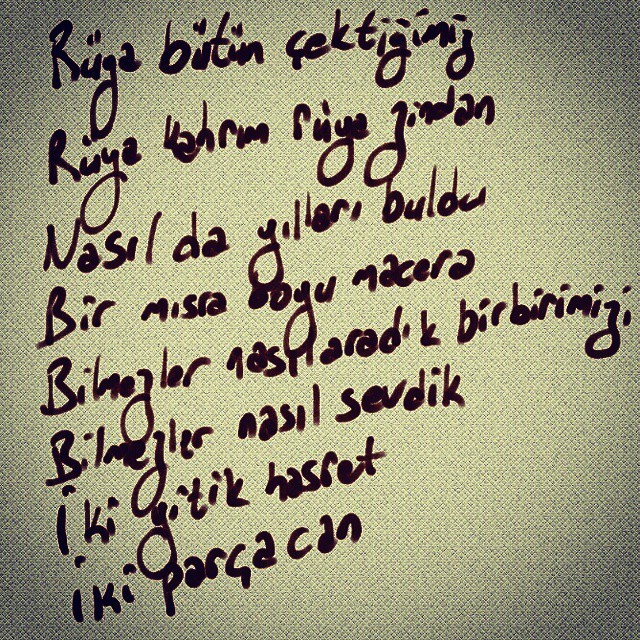 Rüya bütün çektiğimiz
Rüya kahrım rüya zindan
Nasıl da yılları buldu
Bir mısra boyu macera
Bilmezler nasıl aradık birbirimizi
Bilmezler nasıl sevdik
İki yitik hasret
İki parça can